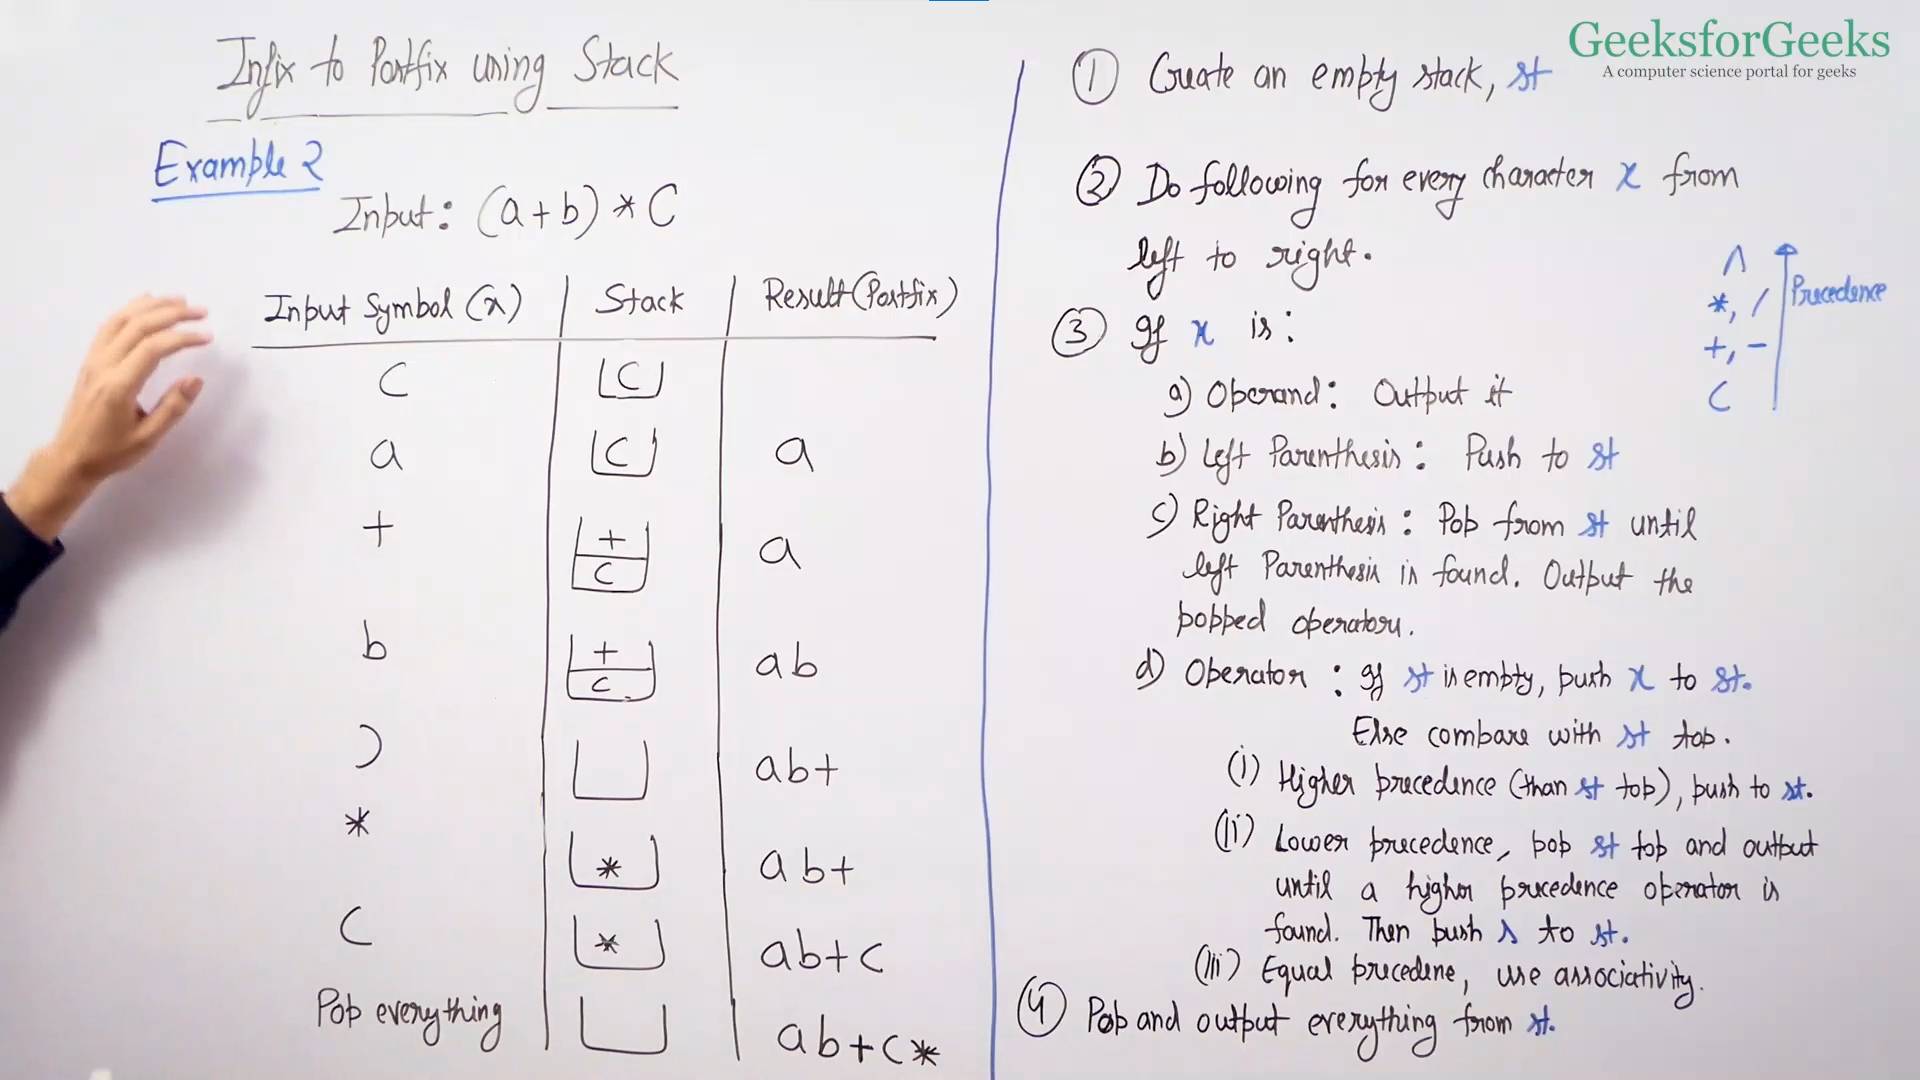 Infix to Postfix using Stack
Example 2
Input: (a+b) * C
Input Symbol (x) Stack Result (Postfix)
( (
a ( a
+ + ( a
b + ( ab
) ab+
* * ab+
C * ab+c
Pop everything ab+c*
GeeksforGeeks
A computer science portal for geeks
① Create an empty stack, st
② Do following for every character x from
left to right.
③ If x is:
a) Operand: Output it
b) Left Parenthesis: Push to st
c) Right Parenthesis: Pop from st until
left Parenthesis is found. Output the
popped operators.
d) Operator: If st is empty, push x to st.
Else compare with st top.
(i) Higher precedence (than st top), push to st.
(ii) Lower precedence, pop st top and output
until a higher precedence operator is
found. Then push s to st.
(iii) Equal precedene, use associativity.
④ Pop and output everything from st.
^
*, /
+, -
(
Precedence